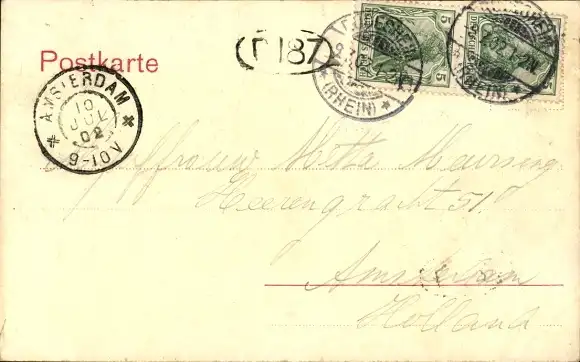 Postkarte
P 187
AMSTERDAM
10
JUL
02
9-10V
(RHEIN)
5
5
Jeffrouw Metha Meursing
Heerengracht 51.
Amsterdam
Holland